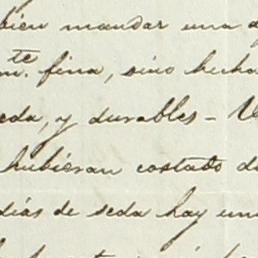 bien mandar una
fina, sino hecha
eda, y durables -
hubieran costado
dias de seda hay un